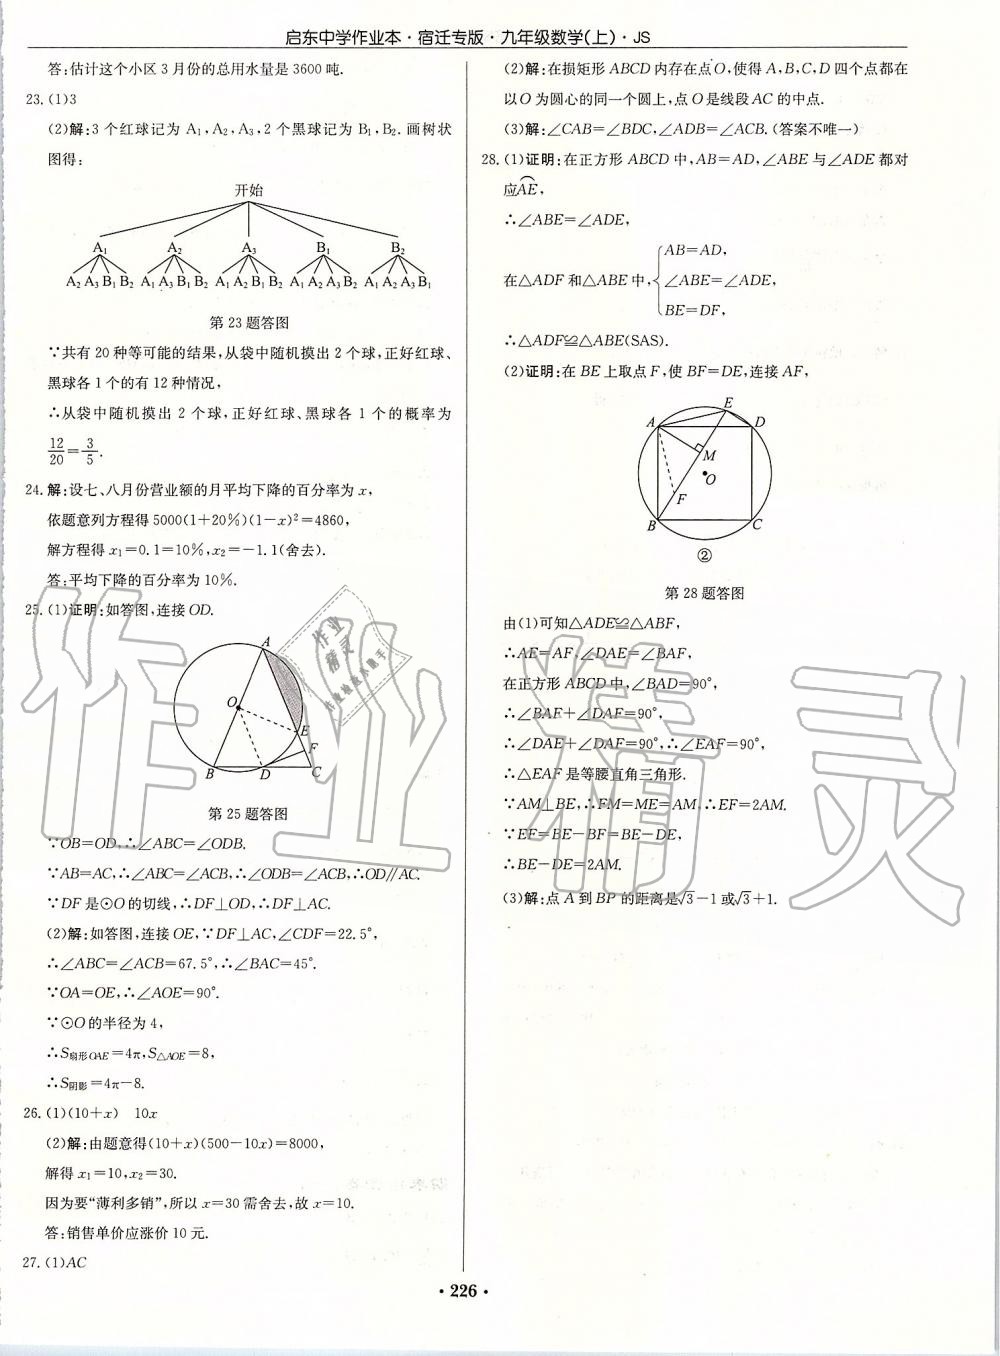 启东中学作业本·宿迁专版·九年级数学(上)·JS
答:估计这个小区3月份的总用水量是3600吨.
23.(1)3
(2)解:3个红球记为A₁,A₂,A₃,2个黑球记为B₁,B₂.画树状
图得:
开始
A₁ A₂ A₃ B₁ B₂
A₂ A₃ B₁ B₂ A₁ A₃ B₁ B₂ A₁ A₂ B₁ B₂ A₁ A₂ A₃ B₂ A₁ A₂ A₃ B₁
第23题答图
∵共有20种等可能的结果,从袋中随机摸出2个球,正好红球、
黑球各1个的有12种情况,
∴从袋中随机摸出2个球,正好红球、黑球各1个的概率为
12/20=3/5.
24.解:设七、八月份营业额的月平均下降的百分率为x,
依题意列方程得5000(1+20%)(1-x)²=4860,
解方程得x₁=0.1=10%,x₂=-1.1(舍去).
答:平均下降的百分率为10%.
25.(1)证明:如答图,连接OD.
A
O
E
F
B D C
第25题答图
∵OB=OD,∴∠ABC=∠ODB.
∵AB=AC,∴∠ABC=∠ACB,∴∠ODB=∠ACB,∴OD∥AC.
∵DF是⊙O的切线,∴DF⊥OD,∴DF⊥AC.
(2)解:如答图,连接OE,∵DF⊥AC,∠CDF=22.5°,
∴∠ABC=∠ACB=67.5°,∴∠BAC=45°.
∵OA=OE,∴∠AOE=90°.
∵⊙O的半径为4,
∴S扇形OAE=4π,S△AOE=8,
∴S阴影=4π-8.
26.(1)(10+x) 10x
(2)解:由题意得(10+x)(500-10x)=8000,
解得x₁=10,x₂=30.
因为要“薄利多销”,所以x=30需舍去,故x=10.
答:销售单价应涨价10元.
27.(1)AC
(2)解:在损矩形ABCD内存在点O,使得A,B,C,D四个点都在
以O为圆心的同一个圆上,点O是线段AC的中点.
(3)解:∠CAB=∠BDC,∠ADB=∠ACB.(答案不唯一)
28.(1)证明:在正方形ABCD中,AB=AD,∠ABE与∠ADE都对
应⌒AE,
∴∠ABE=∠ADE,
AB=AD,
在△ADF和△ABE中,{∠ABE=∠ADE,
BE=DF,
∴△ADF≌△ABE(SAS).
(2)证明:在BE上取点F,使BF=DE,连接AF,
E
A D
M
O
F
B C
②
第28题答图
由(1)可知△ADE≌△ABF,
∴AE=AF,∠DAE=∠BAF,
在正方形ABCD中,∠BAD=90°,
∴∠BAF+∠DAF=90°,
∴∠DAE+∠DAF=90°,∴∠EAF=90°,
∴△EAF是等腰直角三角形.
∵AM⊥BE,∴FM=ME=AM,∴EF=2AM.
∵EF=BE-BF=BE-DE,
∴BE-DE=2AM.
(3)解:点A到BP的距离是√3-1或√3+1.
作业精灵
作业精灵
·226·